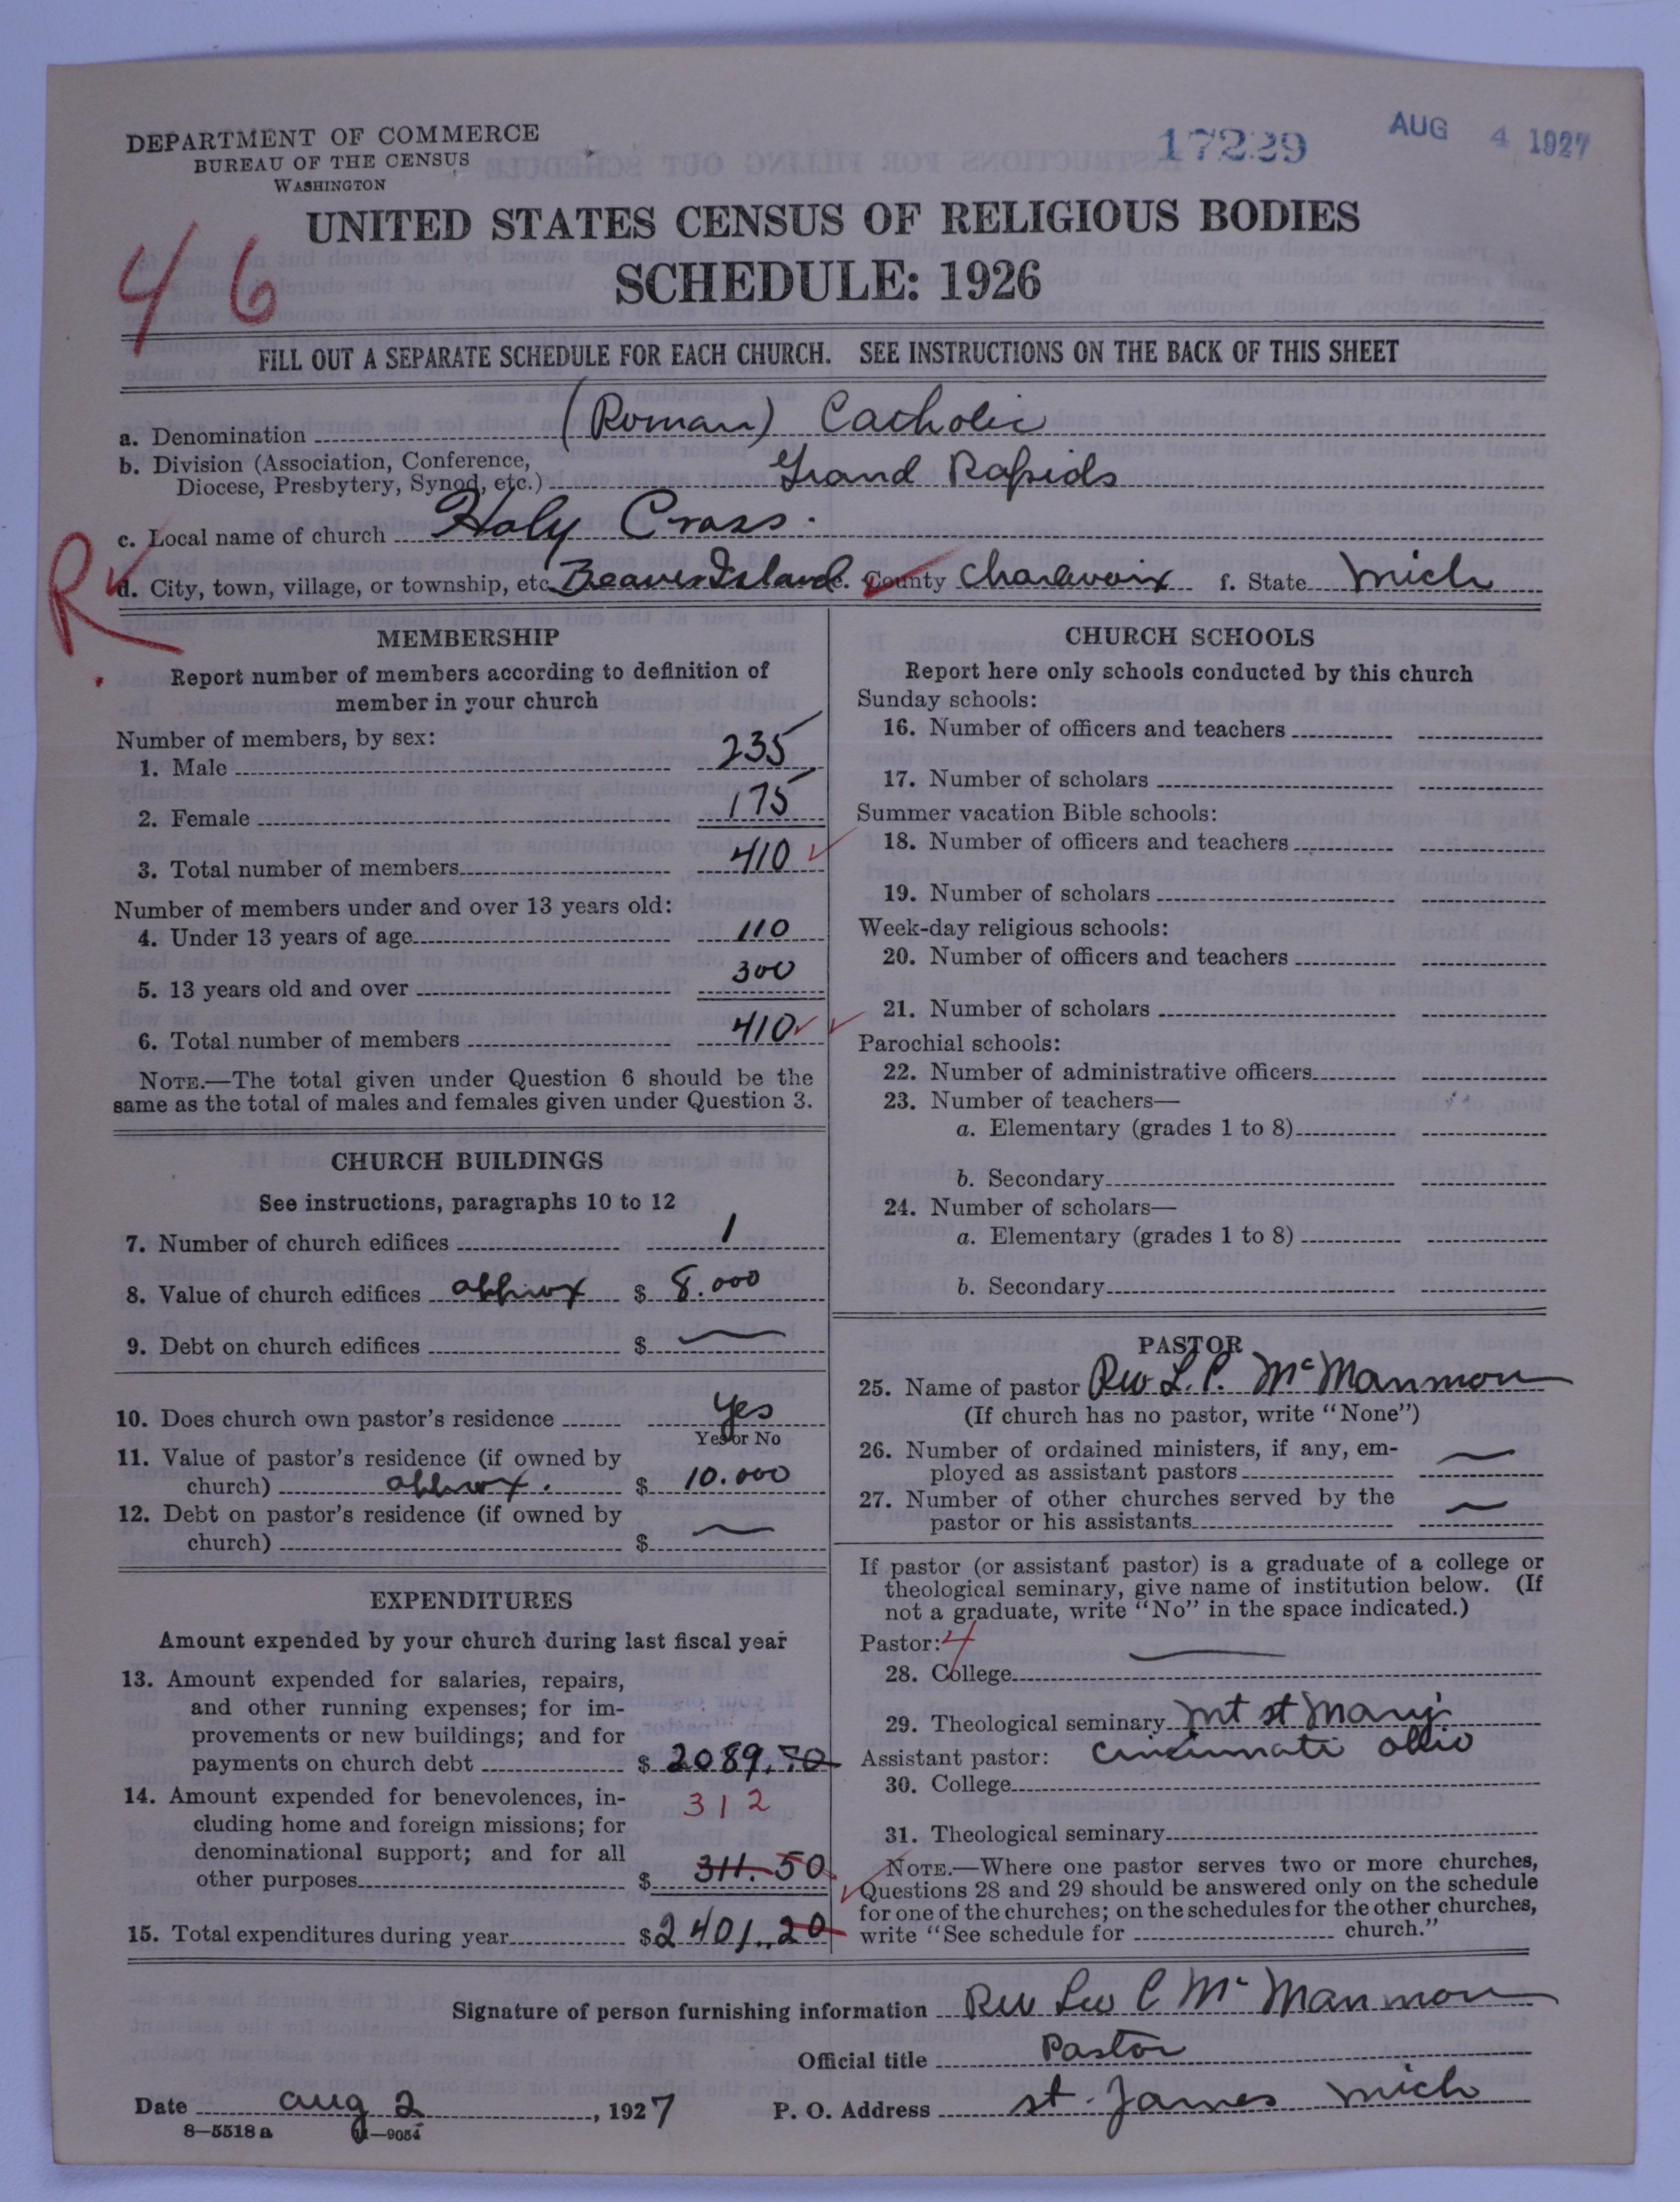 DEPARTMENT OF COMMERCE
BUREAU OF THE CENSUS
WASHINGTON
17229
AUG 4 1927
UNITED STATES CENSUS OF RELIGIOUS BODIES
SCHEDULE: 1926
46
FILL OUT A SEPARATE SCHEDULE FOR EACH CHURCH. SEE INSTRUCTIONS ON THE BACK OF THIS SHEET
a. Denomination (Roman) Catholic
b. Division (Association, Conference,
Diocese, Presbytery, Synod, etc.) Grand Rapids
c. Local name of church Holy Cross.
R
d. City, town, village, or township, etc. Beaver Island e. County Charlevoix f. State Mich
MEMBERSHIP
Report number of members according to definition of
member in your church
Number of members, by sex:
1. Male 235
2. Female 175
3. Total number of members 410
Number of members under and over 13 years old:
4. Under 13 years of age 110
5. 13 years old and over 300
6. Total number of members 410
NOTE.—The total given under Question 6 should be the
same as the total of males and females given under Question 3.
CHURCH BUILDINGS
See instructions, paragraphs 10 to 12
7. Number of church edifices 1
8. Value of church edifices approx $ 8.000
9. Debt on church edifices $ —
10. Does church own pastor's residence Yes
Yes or No
11. Value of pastor's residence (if owned by
church) approx. $ 10.000
12. Debt on pastor's residence (if owned by
church) $ —
EXPENDITURES
Amount expended by your church during last fiscal year
13. Amount expended for salaries, repairs,
and other running expenses; for im-
provements or new buildings; and for
payments on church debt $ 2089.70
14. Amount expended for benevolences, in-
312
cluding home and foreign missions; for
denominational support; and for all
other purposes $ 311.50
15. Total expenditures during year $ 2401.20
CHURCH SCHOOLS
Report here only schools conducted by this church
Sunday schools:
16. Number of officers and teachers
17. Number of scholars
Summer vacation Bible schools:
18. Number of officers and teachers
19. Number of scholars
Week-day religious schools:
20. Number of officers and teachers
21. Number of scholars
Parochial schools:
22. Number of administrative officers
23. Number of teachers—
a. Elementary (grades 1 to 8)
b. Secondary
24. Number of scholars—
a. Elementary (grades 1 to 8)
b. Secondary
PASTOR
25. Name of pastor Rev L. P. McManmon
(If church has no pastor, write "None")
26. Number of ordained ministers, if any, em-
ployed as assistant pastors —
27. Number of other churches served by the
pastor or his assistants —
If pastor (or assistant pastor) is a graduate of a college or
theological seminary, give name of institution below. (If
not a graduate, write "No" in the space indicated.)
Pastor: 4
28. College —
29. Theological seminary Mt St Marys
Assistant pastor: Cincinnati Ohio
30. College
31. Theological seminary
NOTE.—Where one pastor serves two or more churches,
Questions 28 and 29 should be answered only on the schedule
for one of the churches; on the schedules for the other churches,
write "See schedule for church."
Signature of person furnishing information Rev Leo P McManmon
Official title Pastor
Date Aug 2, 1927 P. O. Address St. James Mich
8—5518a 11—9054